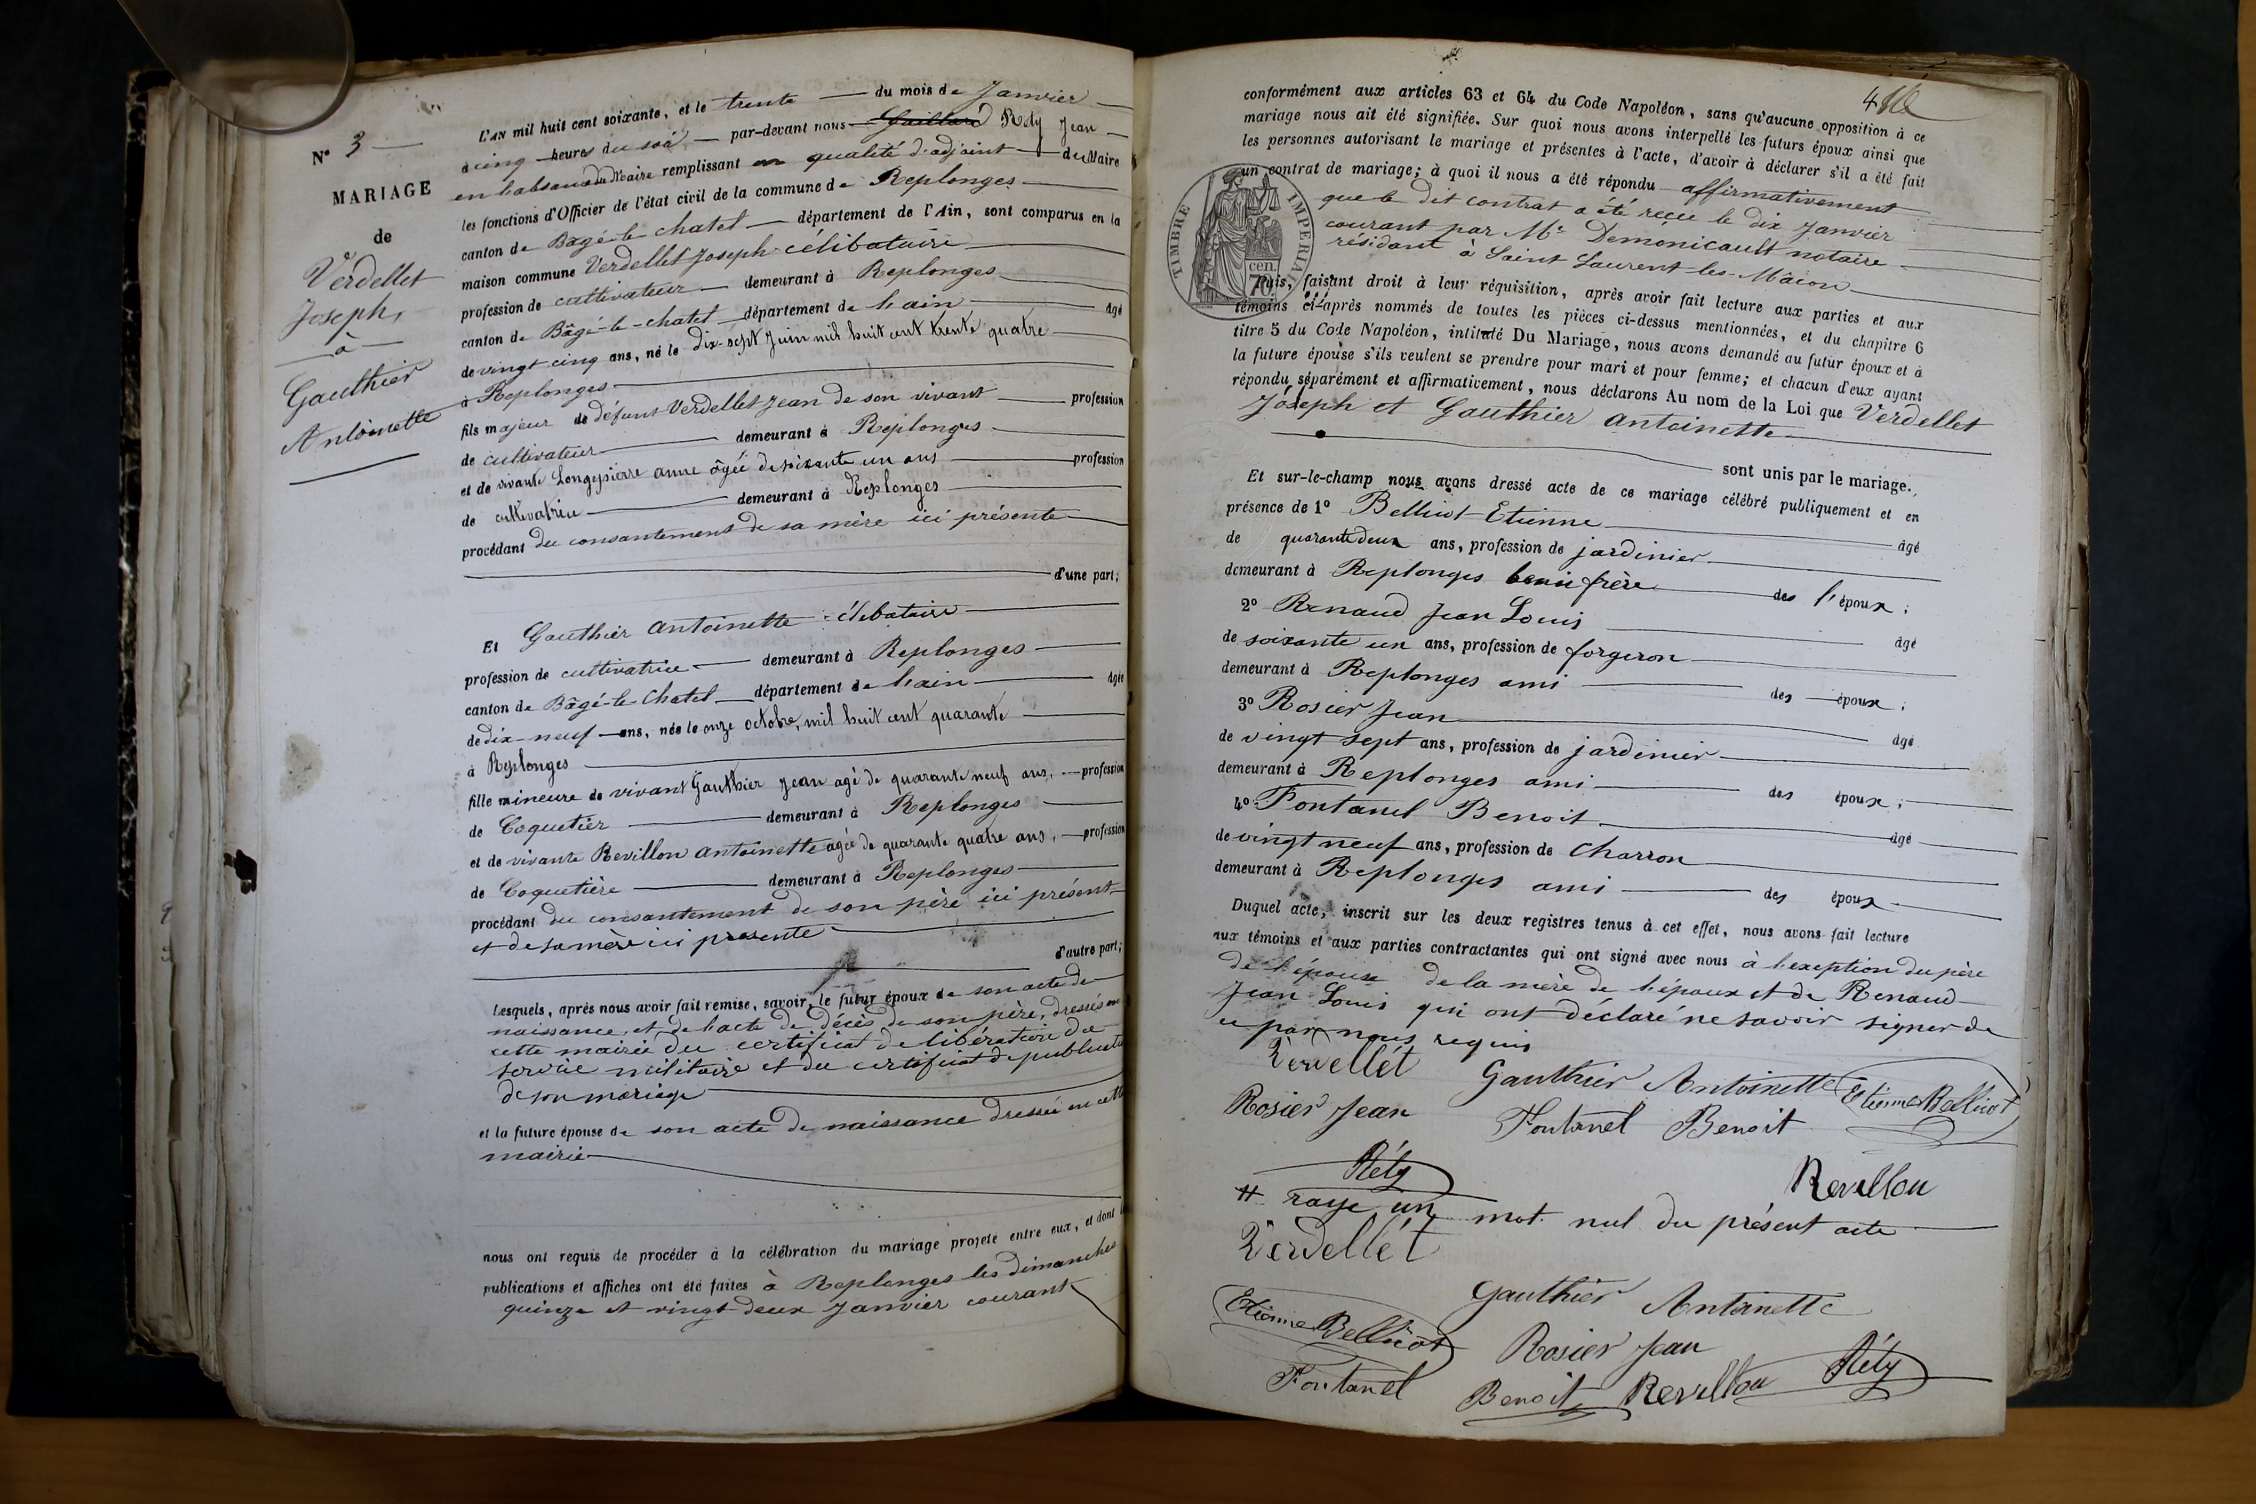 N° 3
MARIAGE
de
Verdellet
Joseph,
à
Gauthier
Antoinette
L'AN mil huit cent soixante, et le trente du mois de Janvier
à cinq heures du soir par-devant nous Gaillard Réty Jean
en l'absence du Maire remplissant en qualité d'adjoint du Maire
les fonctions d'Officier de l'état civil de la commune de Replonges
canton de Bâgé-le-chatel département de l'Ain, sont comparus en la
maison commune Verdellet Joseph célibataire
profession de cultivateur demeurant à Replonges
canton de Bâgé-le-chatel département de l'ain âgé
de vingt cinq ans, né le dix-sept Juin mil huit cent trente quatre
à Replonges
fils majeur de défunt Verdellet Jean de son vivant profession
de cultivateur demeurant à Replonges
et de vivante Longepierre anne âgée de soixante un ans profession
de cultivatrice demeurant à Replonges
procédant du consantement de sa mère ici présente
d'une part;
Et Gauthier Antoinette célibataire
profession de cultivatrice demeurant à Replonges
canton de Bâgé-le-Chatel département de l'ain âgée
de dix-neuf ans, née le onze octobre, mil huit cent quarante
à Replonges
fille mineure de vivant Gauthier Jean agé de quarante neuf ans, profession
de Coquetier demeurant à Replonges
et de vivante Revillon Antoinette agée de quarante quatre ans, profession
de Coquetière demeurant à Replonges
procédant du consantement de son père ici présent
et de sa mère ici presente
d'autre part;
Lesquels, après nous avoir fait remise, savoir, le futur époux de son acte de
naissance, et de l'acte de décès de son père, dressés en
cette mairie du certificat de libération du
service militaire et du certificat de publication
de son mariage
et la future épouse de son acte de naissance dressée en cette
mairie
nous ont requis de procéder à la célébration du mariage projeté entre eux, et dont les
publications et affiches ont été faites à Replonges les dimanches
quinze et vingt-deux Janvier courant
conformément aux articles 63 et 64 du Code Napoléon, sans qu'aucune opposition à ce
mariage nous ait été signifiée. Sur quoi nous avons interpellé les futurs époux ainsi que
les personnes autorisant le mariage et présentes à l'acte, d'avoir à déclarer s'il a été fait
un contrat de mariage; à quoi il nous a été répondu affirmativement
que le dit contrat a été reçu le dix Janvier
courant par Me Demonicault notaire
résidant à Saint Laurent-les-Mâcon
TIMBRE IMPERIAL
70 cen.
Puis, faisant droit à leur réquisition, après avoir fait lecture aux parties et aux
témoins ci-après nommés de toutes les pièces ci-dessus mentionnées, et du chapitre 6
titre 5 du Code Napoléon, intitulé Du Mariage, nous avons demandé au futur époux et à
la future épouse s'ils veulent se prendre pour mari et pour femme; et chacun d'eux ayant
répondu séparément et affirmativement, nous déclarons Au nom de la Loi que Verdellet
Joseph et Gauthier Antoinette
sont unis par le mariage.
Et sur-le-champ nous avons dressé acte de ce mariage célébré publiquement et en
présence de 1° Bellicot Etienne âgé
de quarante deux ans, profession de jardinier
demeurant à Replonges beau frère de l'époux;
2° Renaud Jean Louis âgé
de soixante un ans, profession de forgeron
demeurant à Replonges ami des époux;
3° Rosier Jean âgé
de vingt sept ans, profession de jardinier
demeurant à Replonges ami des époux;
4° Fontanel Benoit âgé
de vingt neuf ans, profession de Charron
demeurant à Replonges ami des époux
Duquel acte, inscrit sur les deux registres tenus à cet effet, nous avons fait lecture
aux témoins et aux parties contractantes qui ont signé avec nous à l'exeption du père
de l'épouse de la mère de l'époux et de Renaud
Jean Louis qui ont déclaré ne savoir signer de
ce par nous requis
Verdellet Gauthier Antoinette Etienne Bellicot
Rosier Jean Fontanel Benoit
Réty Revillon
# raye un mot nul du présent acte
Verdellet
Gauthier Antoinette
Etienne Bellicot Rosier Jean
Fontanel Benoit Revillon Réty